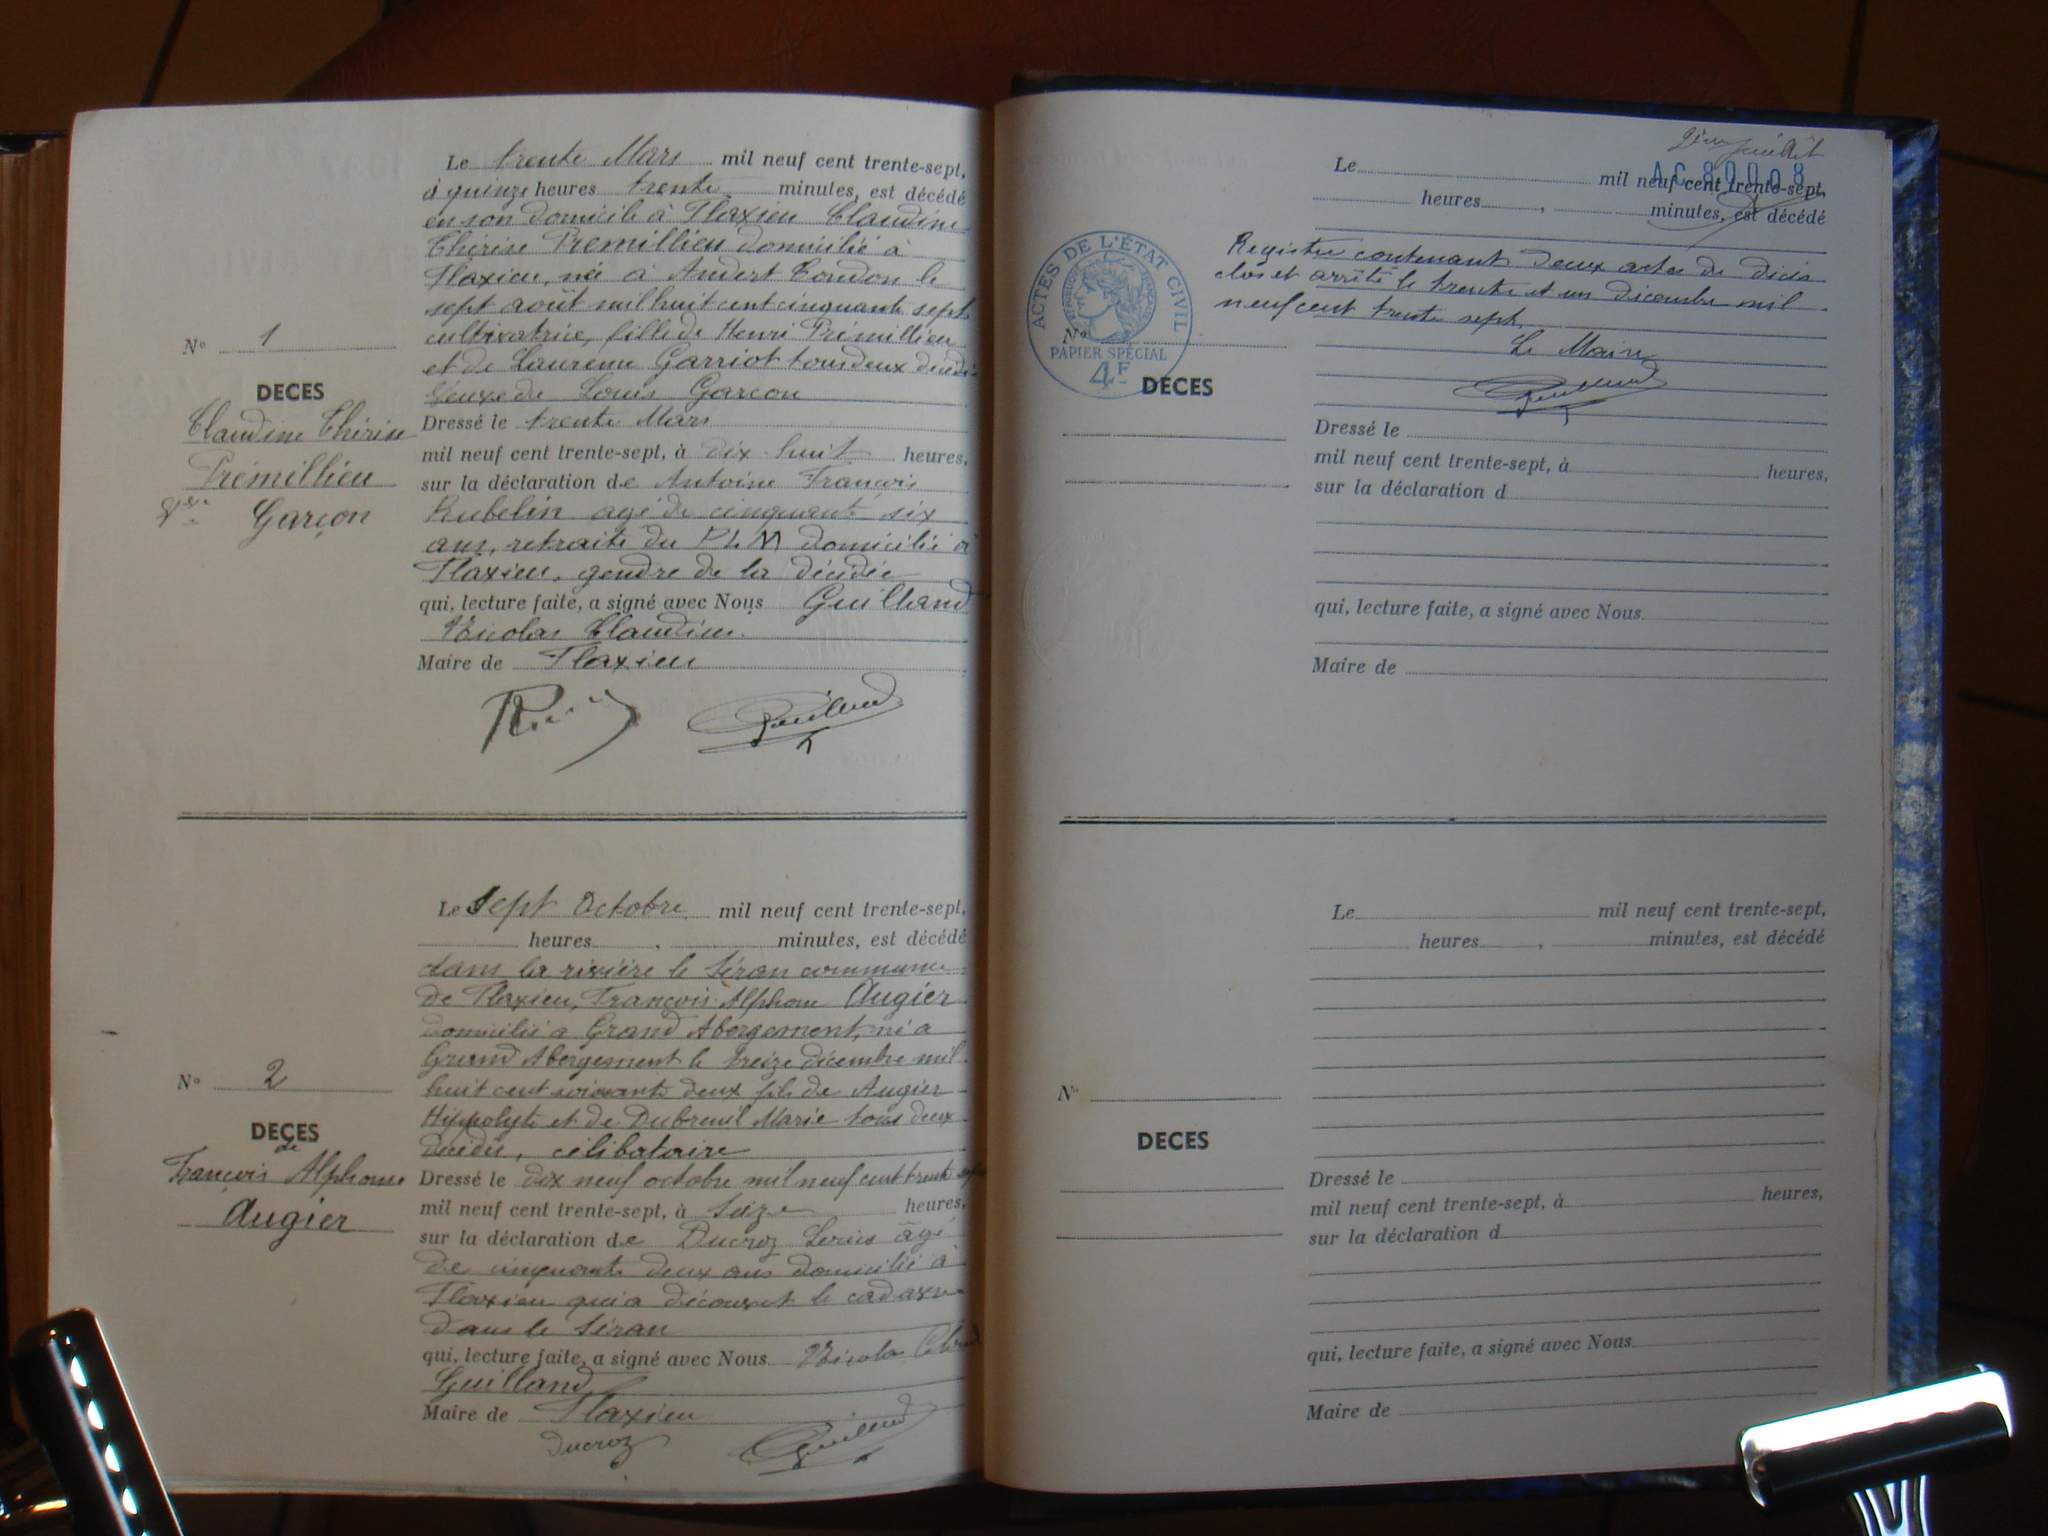 Le trente Mars mil neuf cent trente-sept,
à quinze heures trente minutes, est décédé
en son domicile à Flaxieu Claudine
Thérèse Prémillieu domicilié à
Flaxieu, née à Andert Condon le
sept août mil huit cent cinquante sept
cultivatrice, fille de Henri Prémillieu
et de Laurence Garriot tous deux décédés
Veuve de Louis Garçon
N° 1
DECES
Claudine Thérèse
Prémillieu
Vve
Garçon
Dressé le trente Mars
mil neuf cent trente-sept, à dix-huit heures,
sur la déclaration de Antoine François
Rubelin agé de cinquante six
ans, retraité du PLM domicilié à
Flaxieu, gendre de la décédée
qui, lecture faite, a signé avec Nous Guilland
Nicolas Claudius
Maire de Flaxieu
Guilland
Le sept Octobre mil neuf cent trente-sept,
heures , minutes, est décédé
dans la rivière le Séran commune
de Flaxieu, François Alphonse Augier
domicilié a Grand Abergement, né a
Grand Abergement le treize décembre mil
huit cent soixante deux fils de Augier
Hippolyte et de Dubreuil Marie tous deux
décédés, célibataire
N° 2
DECES
de
François Alphonse
Augier
Dressé le dix neuf octobre mil neuf cent trente sept
mil neuf cent trente-sept, à seize heures,
sur la déclaration de Ducroz âgé
de cinquante deux ans domicilié à
Flaxieu qui a découvert le cadavre
dans le Séran
qui, lecture faite, a signé avec Nous Nicolas
Guilland
Maire de Flaxieu
Ducroz Guilland
2ème feuillet
AC 80008
Le mil neuf cent trente-sept,
heures , minutes, est décédé
Registre contenant deux actes de décès
clos et arrêté le trente et un décembre mil
neuf cent trente sept.
Le Maire
Guilland
ACTES DE L'ÉTAT CIVIL
RÉPUBLIQUE FRANÇAISE
PAPIER SPÉCIAL
4F
N°
DECES
Dressé le
mil neuf cent trente-sept, à heures,
sur la déclaration d
qui, lecture faite, a signé avec Nous
Maire de
Le mil neuf cent trente-sept,
heures , minutes, est décédé
N°
DECES
Dressé le
mil neuf cent trente-sept, à heures,
sur la déclaration d
qui, lecture faite, a signé avec Nous
Maire de